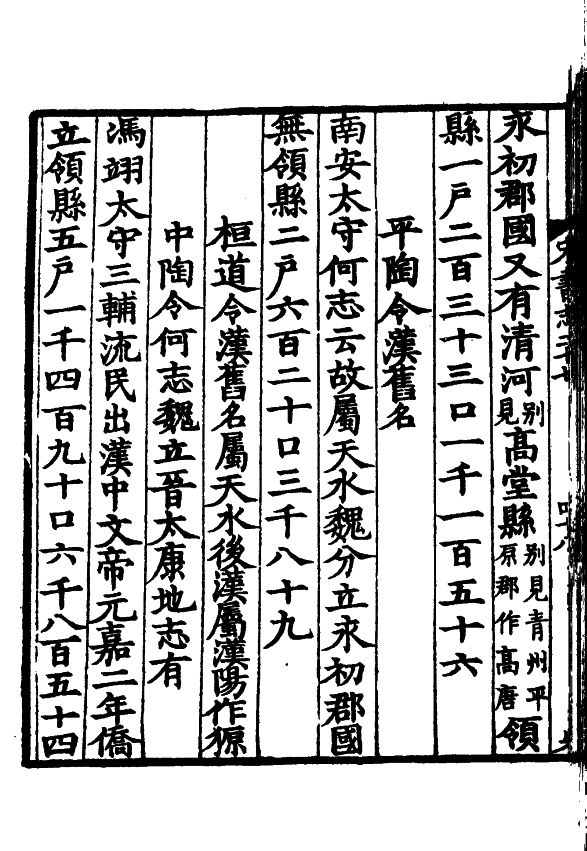 永初郡國又有清河別見高堂縣別見青州平原郡作高唐領
縣一戶二百三十三口一千一百五十六
平陶令漢舊名
南安太守何志云故屬天水魏分立永初郡國
無領縣二戶六百二十口三千八十九
桓道令漢舊名屬天水後漢屬漢陽作獂
中陶令何志魏立晉太康地志有
馮翊太守三輔流民出漢中文帝元嘉二年僑
立領縣五戶一千四百九十口六千八百五十四